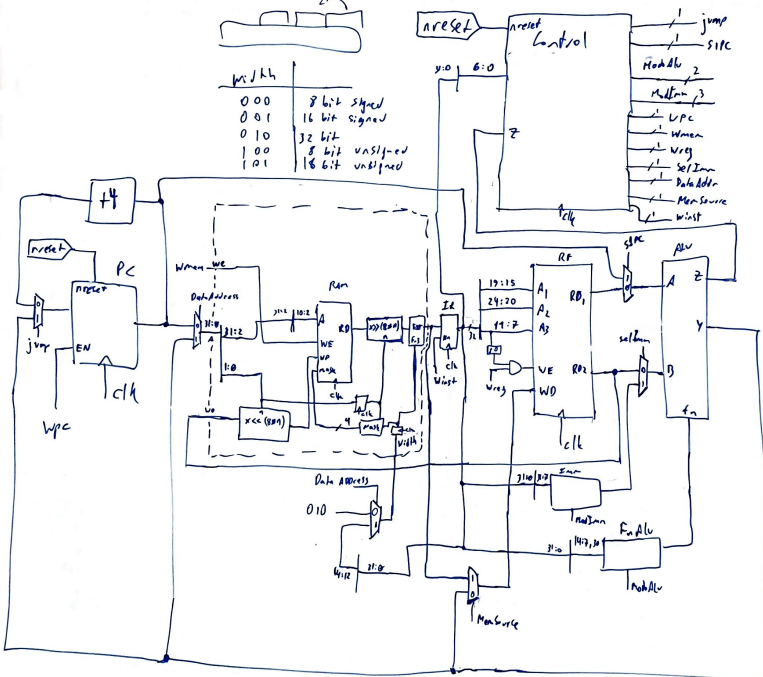 nreset
nreset
Control
jump
S1PC
ModoAlu
2
ModImm
3
WPC
Wmem
Wreg
SelImm
DataAddr
MemSource
Winst
31:0
6:0
Z
clk
Width
000 8 bit signed
001 16 bit signed
010 32 bit
100 8 bit unsigned
101 18 bit unsigned
+4
nreset
PC
nreset
EN
clk
Wpc
0
1
jump
Wmem we
DataAddress
0
1
31:0
A
31:2
1:0
31:2
10:2
RAM
A
RD
WE
WD
mask
clk
x>>(8*n)
x<<(8*n)
mask
4
clk
Width
IR
En
clk
Winst
32
19:15
24:20
11:7
RF
A1
A2
A3
RD1
RD2
WE
WD
Wreg
clk
S1PC
1
0
SelImm
0
1
ALU
A
Z
Y
B
fn
Data Address
010
0
1
14:12
31:0
31:0
31:7
Imm
ModImm
31:0
14:7,30
FnAlu
ModoAlu
1
0
MemSource